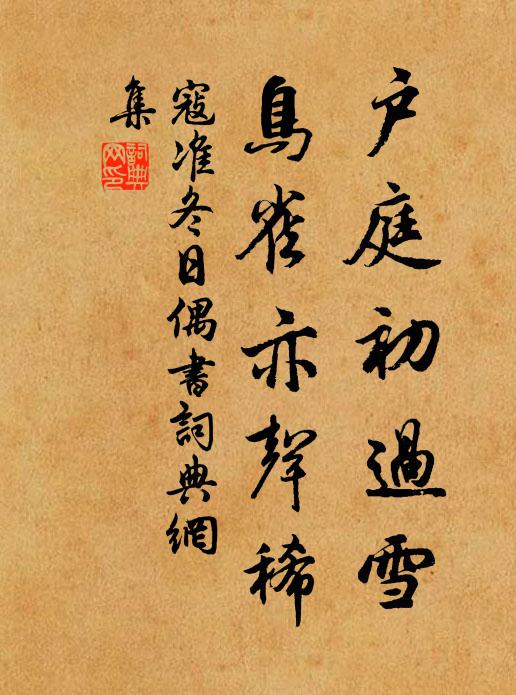 户庭初過雪
鳥雀亦聲稀
寇准冬日偶書詞典網
集
詞典
网印